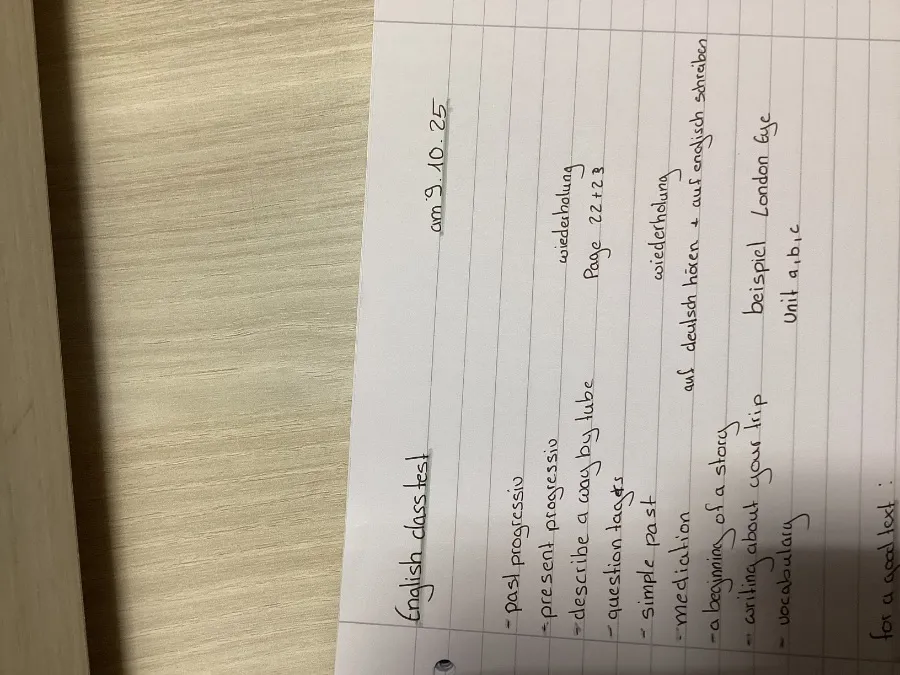 English classtest am 9.10.25
- past progressiv
- present progressiv wiederholung
- describe a way by tube Page 22+23
- question tags
- simple past wiederholung
- mediation auf deutsch hören + auf englisch schreiben
- a beginning of a story
- writing about your trip beispiel London Eye
- vocabulary Unit a,b,c
for a good text: